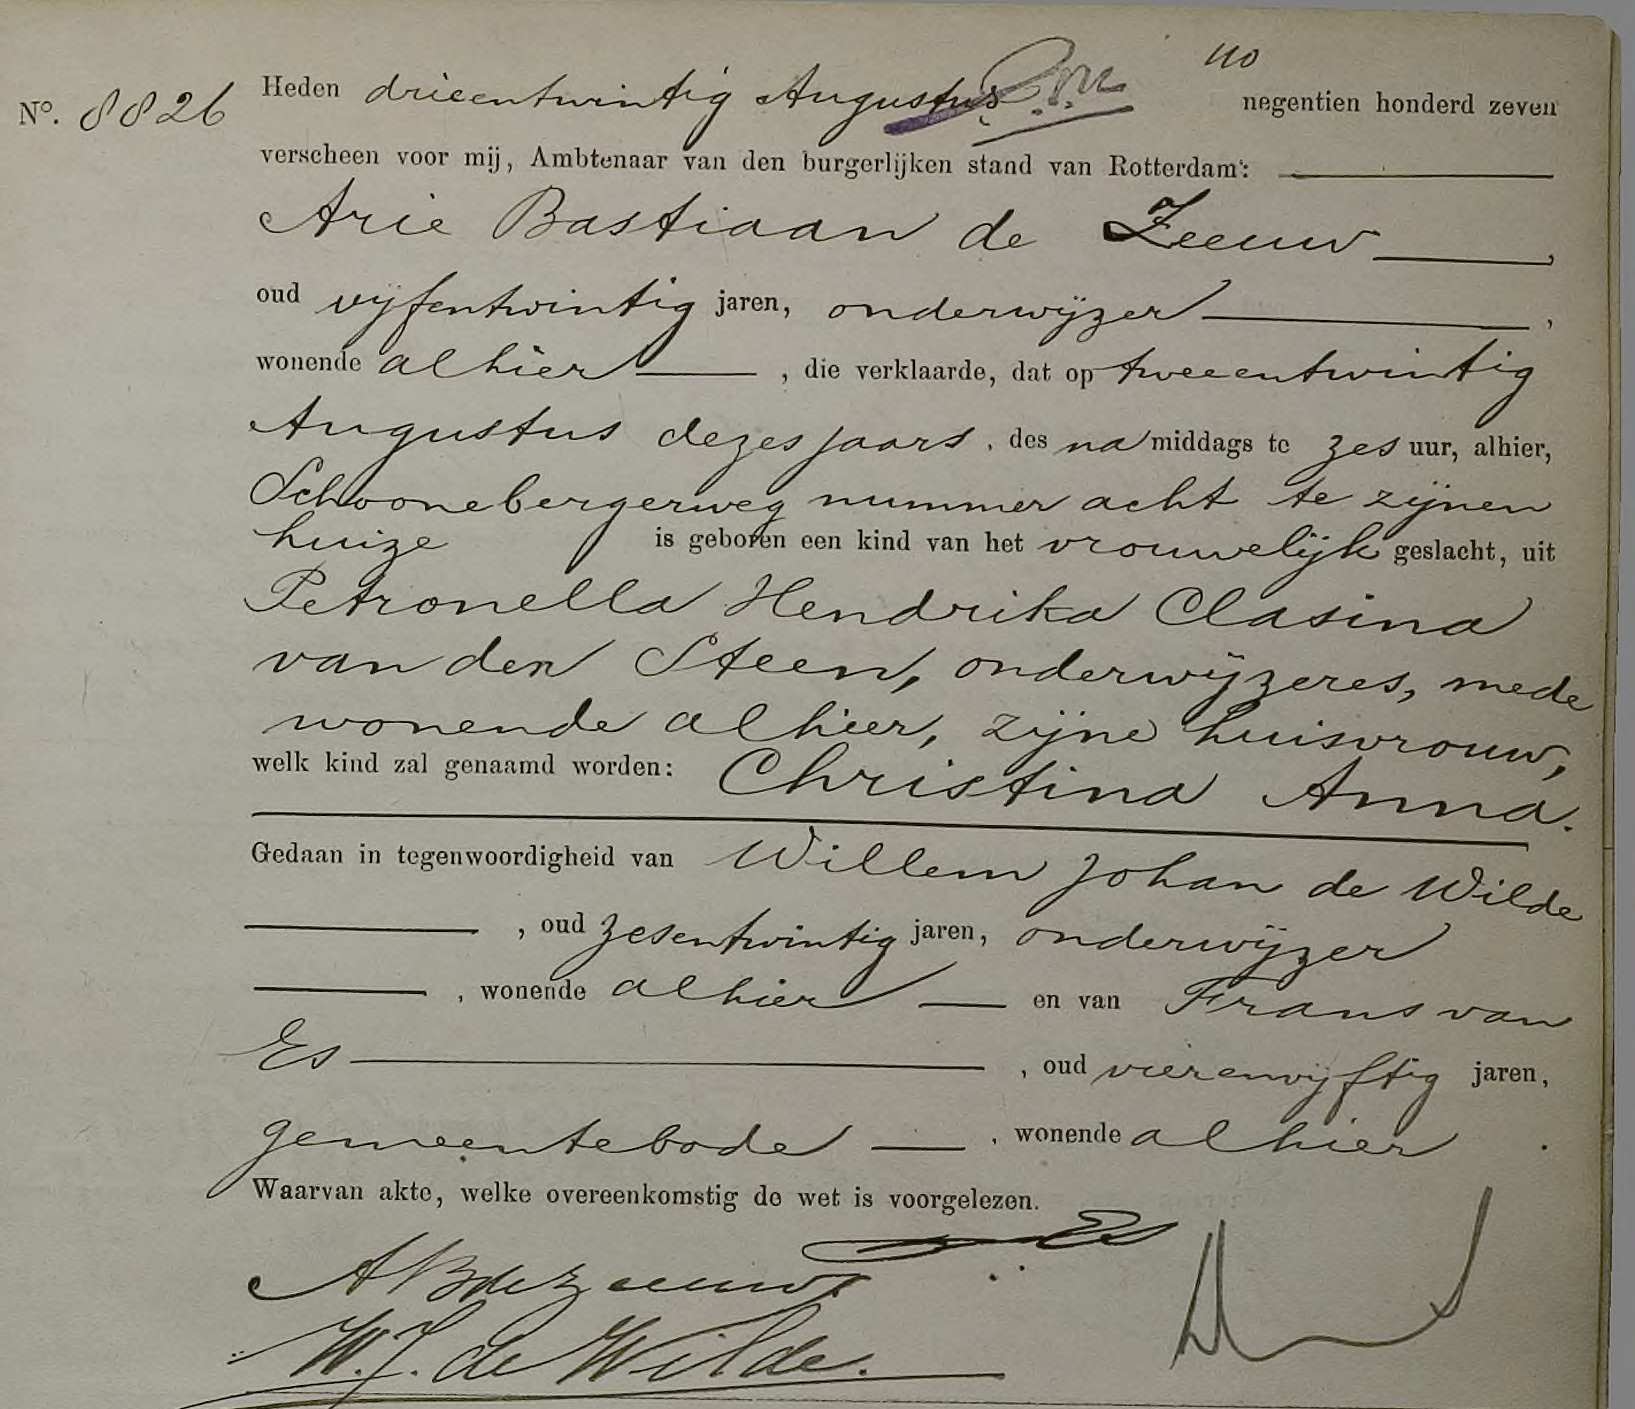 110
No. 8826 Heden drieentwintig Augustus negentien honderd zeven
verscheen voor mij, Ambtenaar van den burgerlijken stand van Rotterdam:
Arie Bastiaan de Zeeuw,
oud vijfentwintig jaren, onderwijzer,
wonende alhier, die verklaarde, dat op tweeentwintig
Augustus dezes jaars, des namiddags te zes uur, alhier,
Schoonebergerweg nummer acht te zijnen
huize is geboren een kind van het vrouwelijk geslacht, uit
Petronella Hendrika Clasina
van der Steen, onderwijzeres, mede
wonende alhier, zijne huisvrouw,
welk kind zal genaamd worden: Christina Anna.
Gedaan in tegenwoordigheid van Willem Johan de Wilde
, oud zesentwintig jaren, onderwijzer
, wonende alhier en van Frans van
Es, oud vierenvijftig jaren,
gemeentebode, wonende alhier.
Waarvan akte, welke overeenkomstig de wet is voorgelezen.
Es
AB de Zeeuw
W. J. de Wilde.